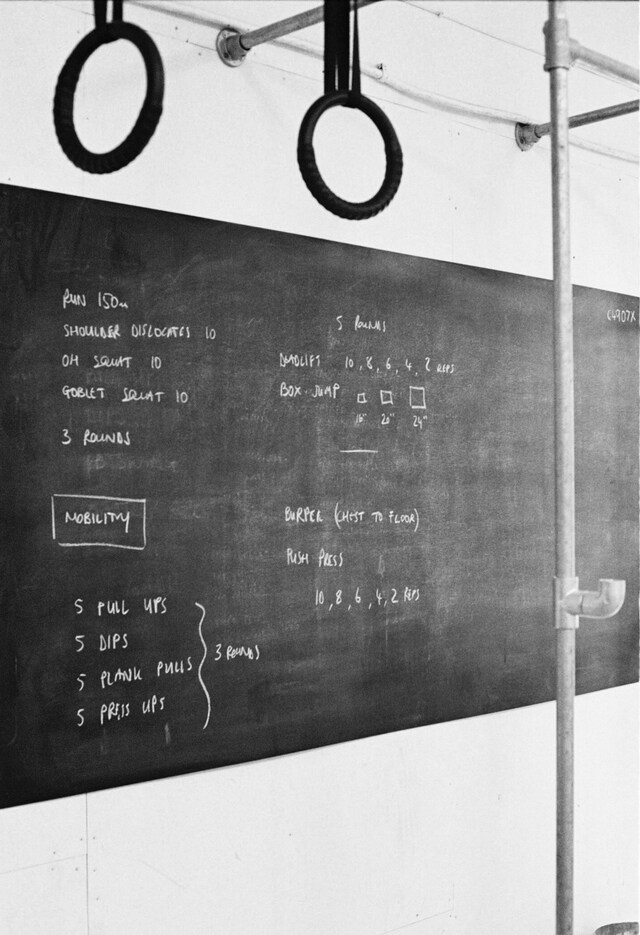 RUN 150m
SHOULDER DISLOCATES 10
OH SQUAT 10
GOBLET SQUAT 10
3 ROUNDS
MOBILITY
5 PULL UPS
5 DIPS
5 PLANK PULLS
5 PRESS UPS
3 ROUNDS
5 ROUNDS
DEADLIFT 10, 8, 6, 4, 2 REPS
BOX JUMP
16" 20" 24"
BURPEE (CHEST TO FLOOR)
PUSH PRESS
10, 8, 6, 4, 2 REPS